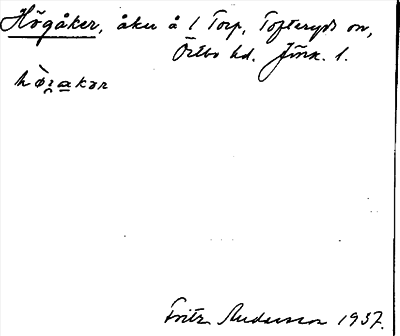 Högåker, åker å 1 Torp, Tofteryds sn,
Östbo hd. Jönk. l.
hø̀ʒakər
Fritz Andersson 1937.